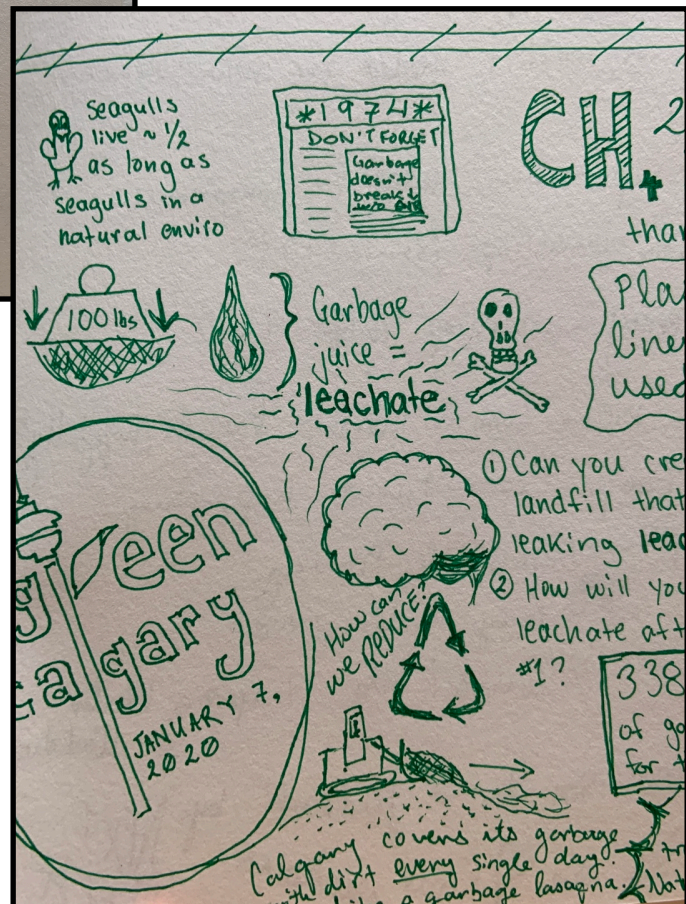 Seagulls
live ~ 1/2
as long as
seagulls in a
natural enviro
*1974*
DON'T FORGET
Garbage
doesn't
break ↓
w/o
CH4 2
than
100 lbs
Garbage
juice =
leachate
Pla
line
used
① Can you cre
landfill that
leaking leac
② How will you
leachate aft
#1?
green
calgary
JANUARY 7,
2020
How can
we REDUCE?
338
of ga
for t
Calgary covers its garbage
with dirt every single day!
like a garbage lasagna.
Nat